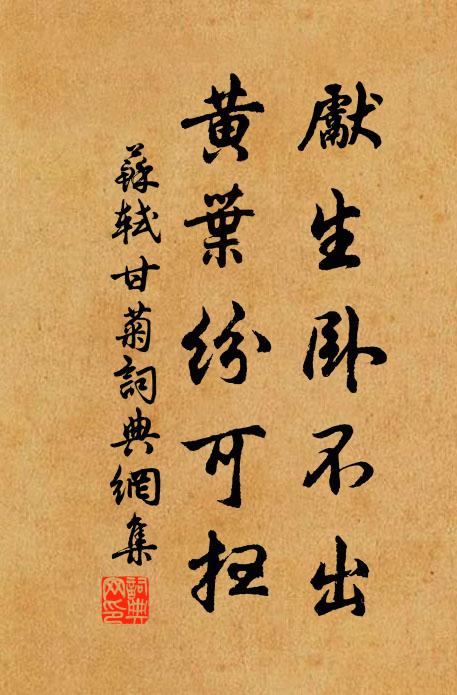 獻生卧不出
黃葉紛可扫
蘇軾甘菊詞典網集
詞典
网印